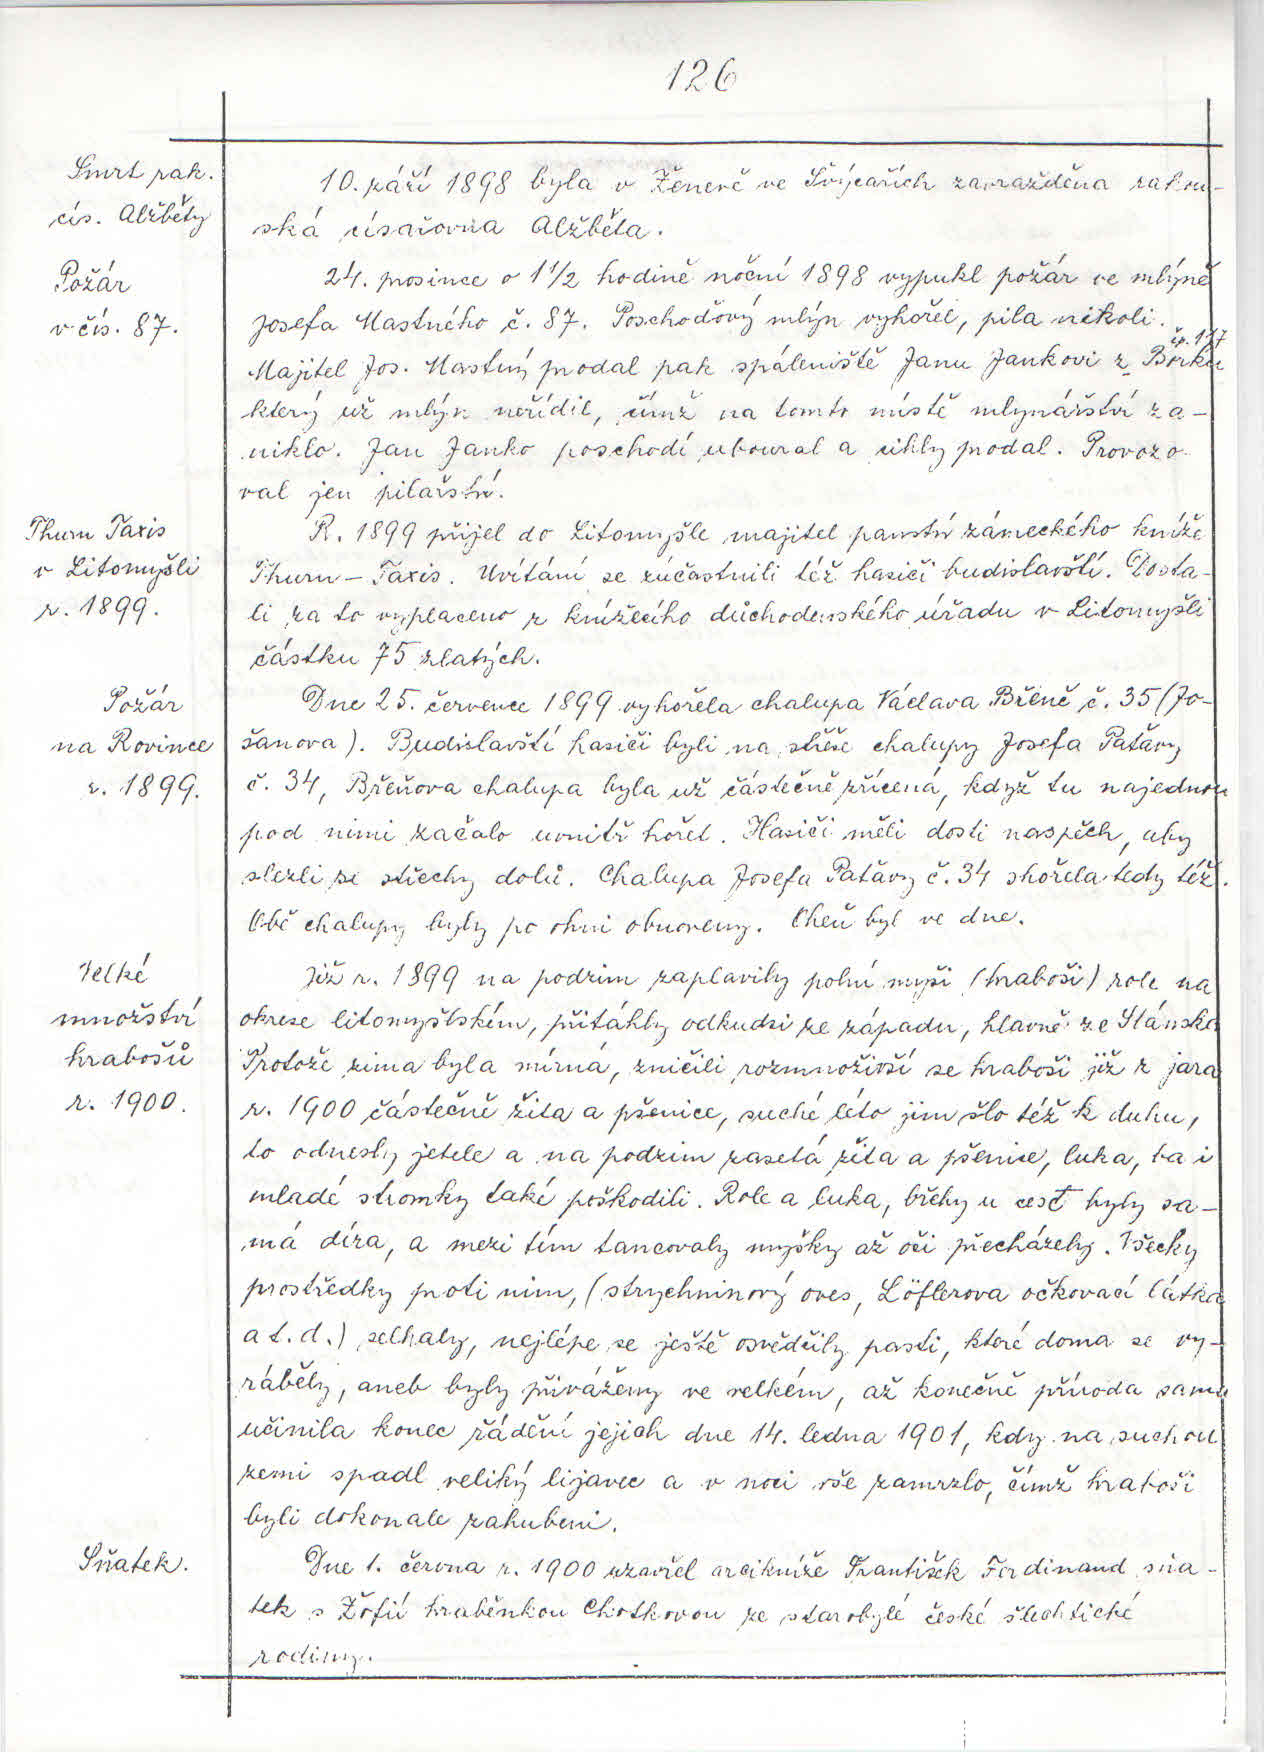 126
Smrt rak.
cís. Alžběty
10. září 1898 byla v Ženevě ve Švýcařích zavražděna rakou-
ská císařovna Alžběta.
Požár
v čís. 87.
24. prosince o 1 1/2 hodině noční 1898 vypukl požár ve mlýně
Josefa Mastného č. 87. Poschoďový mlýn vyhořel, pila nikoli.
čp. 117
Majitel Jos. Mastný prodal pak spáleniště Janu Jankovi z Borku
který už mlýn neřídil, čímž na tomto místě mlynářství za-
niklo. Jan Janko poschodí uboural a cihly prodal. Provozo-
val jen pilařství.
Thurn Taxis
v Litomyšli
r. 1899.
R. 1899 přijel do Litomyšle majitel panství zámeckého kníže
Thurn – Taxis. Uvítání se zúčastnili též hasiči budislavští. Dosta-
li za to vyplaceno z knížecího důchodenského úřadu v Litomyšli
částku 75 zlatých.
Požár
na Rovince
r. 1899.
Dne 25. července 1899 vyhořela chalupa Václava Břeně č. 35 (Jo-
šanova). Budislavští hasiči byli na střeše chalupy Josefa Patávy
č. 34, Břeňova chalupa byla už částečně zřícená, když tu najednou
pod nimi začalo uvnitř hořet. Hasiči měli dosti naspěch, aby
slezli se střechy dolů. Chalupa Josefa Patávy č. 34 shořela tedy též.
Obě chalupy byly po ohni obnoveny. Oheň byl ve dne.
Velké
množství
hrabošů
r. 1900.
Již r. 1899 na podzim zaplavily polní myši (hraboši) role na
okrese litomyšlském, přitáhly odkudsi ze západu, hlavně ze Slánska
Protože zima byla mírná, zničili rozmnoživší se hraboši již z jara
r. 1900 částečně žita a pšenice, suché léto jim šlo též k duhu,
to odnesly jetele a na podzim zasetá žita a pšenice, luka, ba i
mladé stromky také poškodili. Role a luka, břehy u cest byly sa-
má díra, a mezi tím tancovaly myšky až oči přecházely. Všecky
prostředky proti nim, (strychninový oves, Löflerova očkovací látka
a t. d.) selhaly, nejlépe se ještě osvědčily pasti, které doma se vy-
ráběly, aneb byly přiváženy ve velkém, až konečně příroda sama
učinila konec řádění jejich dne 14. ledna 1901, kdy na suchou
zemi spadl veliký lijavec a v noci vše zamrzlo, čímž hraboši
byli dokonale zahubeni.
Sňatek.
Dne 1. června r. 1900 uzavřel arcikníže František Ferdinand sňa-
tek s Žofií hraběnkou Chotkovou ze starobylé české šlechtické
rodiny.